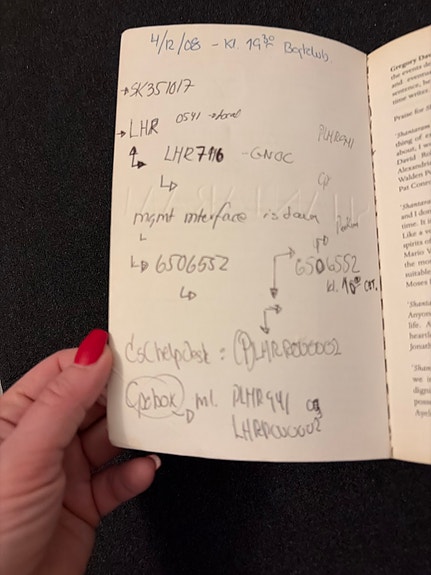 4/12/08 - Kl. 19³⁰ Bogklub.
SK351017
LHR 0541 → local
PLHR941
LHR7116 - GNOC
mgmt interface is down
6506552
6506552
kl. 10⁰⁰ CET.
CSChelpdesk : (P)LHRP000002
Cpebox ml. PLHR941 og
LHRP000002
Gregory Dav
the events de
and eventua
sentence, he
time writer.
Praise for S
'Shantaram
thing of ex
about. I wo
David Ro
Alexandri
Walden Po
Pat Conro
'Shantara
and I don
time. It i
Like a vo
spirits of
Mario V
the mos
suitable
Moses I
'Shanta
Anyon
life. A
hearte
Jonath
'Shan
we i
digni
posse
Ayel